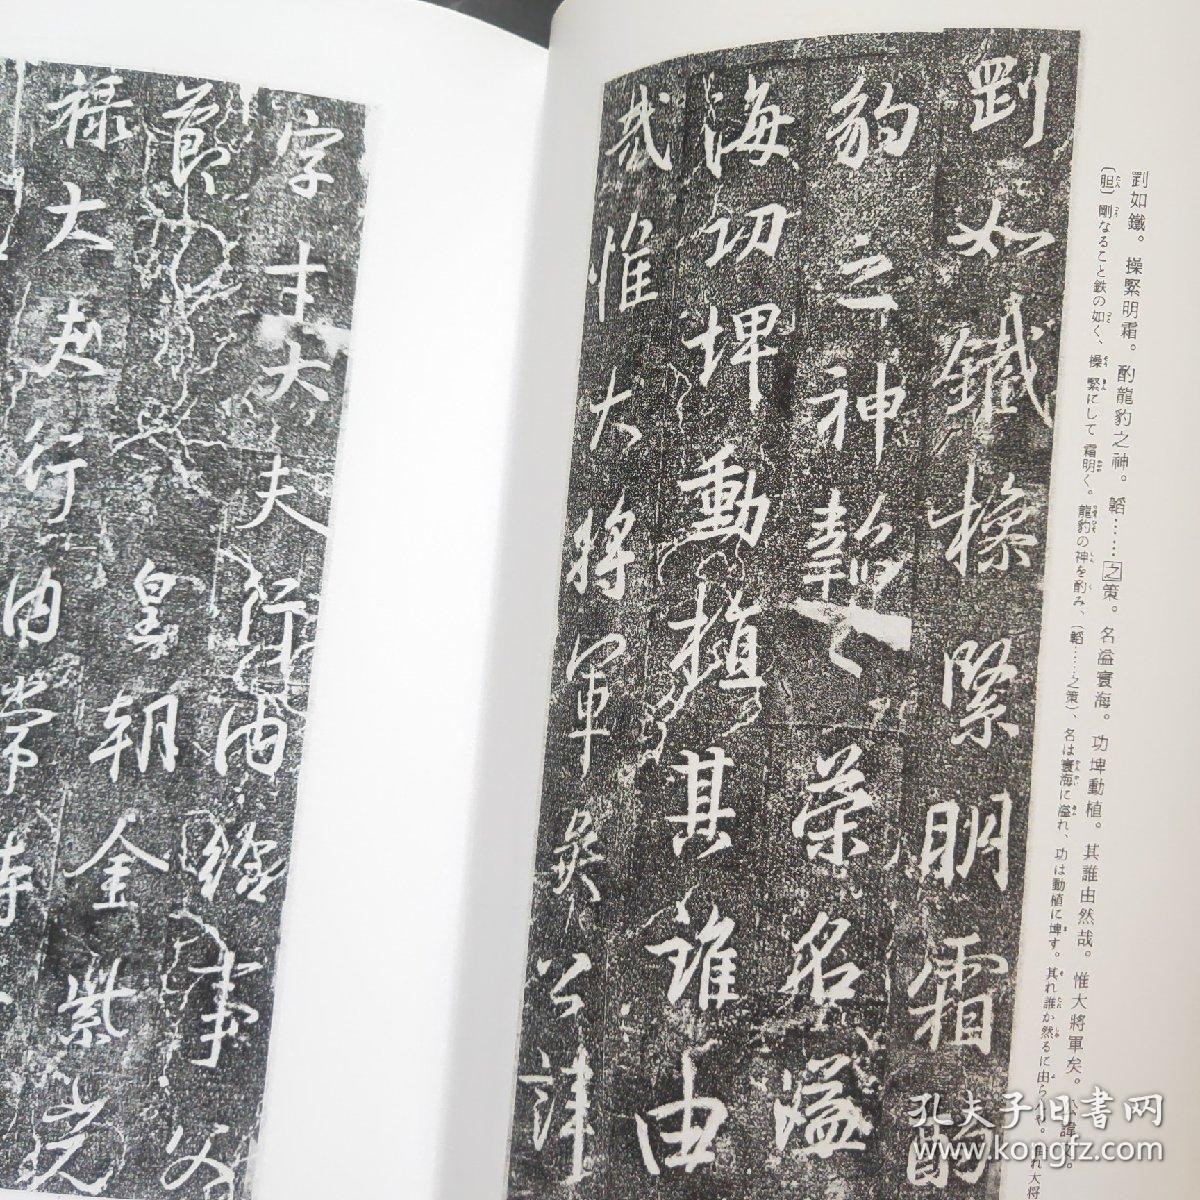 剛如鐵操緊明霜酌
豹之神䪮之策名溢
海功埤動植其誰由
哉惟大将軍矣公諱
字夲大夫行内
皇朝金紫光
禄大夫行内常侍
剛如鐵。操緊明霜。酌龍豹之神。韜……之策。名溢寰海。功埤動植。其誰由然哉。惟大將軍矣。公諱文。
〔胆〕剛なること鉄の如く、操緊にして霜明く。龍豹の神を酌み、〔韜……之策〕、名は寰海に溢れ、功は動植に埤す。其れ誰か然るに由らんや。惟れ大将
孔夫子旧書网
www.kongfz.com